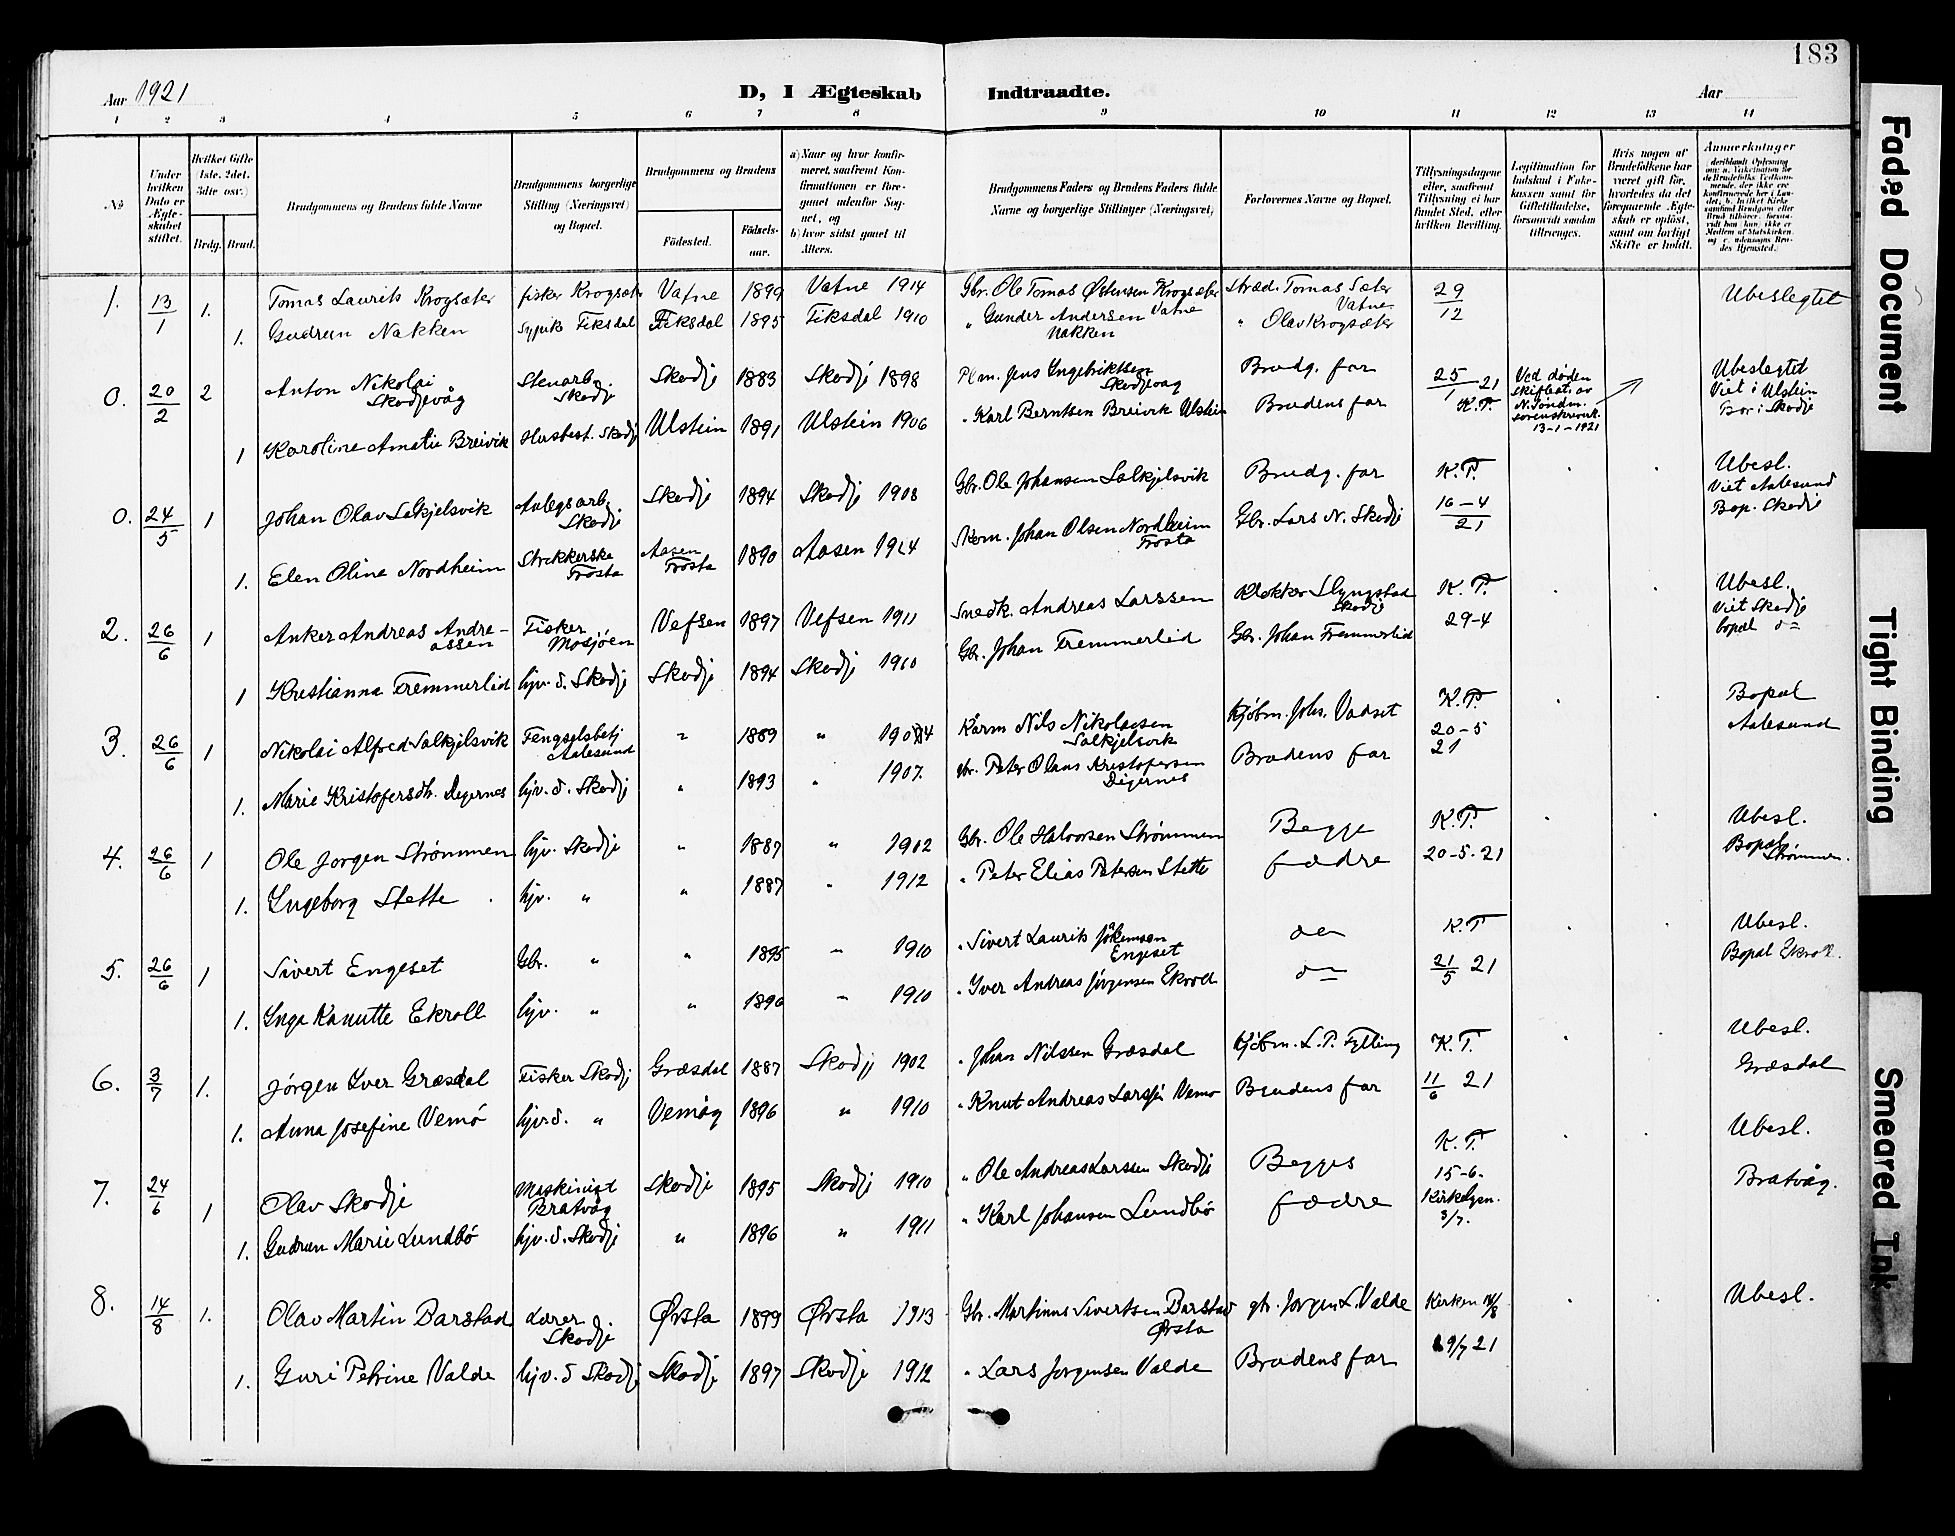 183
Aar 1921
D, I Ægteskab Indtraadte.
Aar
1 2 3 4 5 6 7 8 9 10 11 12 13 14
No.
Under hvilken Dato er Ægteskabet stiftet.
Hvilket Gifte (1ste. 2det. 3dte osv.)
Brdg. Brud.
Brudgommens og Brudens fulde Navne
Brudgommens borgerlige Stilling (Næringsvei) og Bopæl.
Brudgommens og Brudens
Fødested.
Fødselsaar.
a) Naar og hvor konfirmeret, saafremt Konfirmationen er foregaaet udenfor Sognet, og
b) hvor sidst gaaet til Alters.
Brudgommens Faders og Brudens Faders fulde Navne og borgerlige Stillinger (Næringsvei)
Forlovernes Navne og Bopæl.
Tillysningsdagene eller, saafremt Tillysning ei har fundet Sted, efter hvilken Bevilling.
Legitimation for Indskud i Enkekassen samt for Giftetilladelse, forsaavidt saadan tiltrænges.
Hvis nogen af Brudefolkene har været gift før, hvorledes da det foregaaende Ægteskab er opløst, samt om lovligt Skifte er holdt.
Anmærkninger
1. 13/1 1. Tomas Laurits Krogsæter fisker Krogsæter Vatne 1899 Vatne 1914 Gbr. Ole Tomas Østensen Krogsæter Stræd. Tomas Sæter Vatne 29/12 Ubeslegtet
1. Gudrun Nakken Sypike Fiksdal Fiksdal 1895 Fiksdal 1910 " Gunder Andersen Vatne Nakken " Olav Krogsæter
0. 20/2 2 Anton Nikolai Skodjevåg Stenarb. Skodje Skodje 1883 Skodje 1898 Jens Ingebriktsen Skodjevåg Brudg. far 25/1 21 K.T. Ved døden skifteat. av N. Söndm. sorenskriverk. 13-1-1921 Ubeslegtet Viet i Ulstein Bor i Skodje
1 Karoline Amalie Breivik Husbest. Skodje Ulstein 1891 Ulstein 1906 " Karl Berntsen Breivik Ulstein Brudens far
0. 24/5 1 Johan Olav Salkjelsvik Anlegsarb. Skodje Skodje 1894 Skodje 1908 Gbr. Ole Johansen Salkjelsvik Brudg. far K.T. 16-4/21 Ubesl. Viet Aalesund Bop. Skodje
1. Elen Oline Nordheim Strikkerske Frosta Aasen Frosta 1890 Aasen 1924 Skom. Johan Olsen Nordheim Frosta Gbr. Lars N. Skodje
2. 26/6 1 Anker Andreas Andreassen Fisker Mosjöen Vefsen 1897 Vefsen 1911 Snedk. Andreas Larssen Klokker Slyngstad Skodje K.T. 29-4 Ubesl. Viet Skodje bopæl do
1 Kristianna Fremmerlid hjv. d. Skodje Skodje 1894 Skodje 1910 Gbr. Johan Fremmerlid Gbr. Johan Fremmerlid
3. 26/6 1 Nikolai Alfred Salkjelsvik Fengselsbetj Aalesund " 1889 " 1904 Nils Nikolaesen Salkjelsvik Kjöbm. Johs. Vadset K.T. 20-5 21 Bopæl Aalesund
1. Marie Kristofersdtr. Degernes hjv. d. Skodje " 1893 " 1907. gbr. Peter Olaus Kristofersen Degernes Brudens far
4. 26/6 1 Ole Jorgen Strømmen hjv. Skodje " 1887 " 1902 Gbr. Ole Halvorsen Strømmen Begge K.T. Ubesl. Bopæl Strømmen.
1. Ingeborg Stette hjv. " " 1887 " 1912 " Peter Elias Petersen Stette fædre 20-5-21
5. 26/6 1 Sivert Engeset Gbr. " " 1895 " 1910 " Sivert Laurits Engeset do K.T Ubesl. Bopæl Ekroll.
1. Inga Kanutte Ekroll hjv. " " 1896 " 1910 " Iver Andreas Jörgensen Ekroll do 21/5 21
6. 3/7 1. Jörgen Iver Græsdal Fisker Skodje Græsdal 1887 Skodje 1902 " Johan Nilssen Græsdal Kjöbm. L.P. Fylling K.T. Ubesl. Græsdal
1. Anna Josefine Vemö hjv. d. " Vemöy 1896 " 1910 " Knut Andreas Vemö Brudens far 11/6 21
7. 24/6 1 Olav Skodje Maskinist Bratvåg Skodje 1895 Skodje 1910 " Ole Andreas Larssen Skodje Begges K.T. 15-6. Ubesl. Bratvåg.
1. Gudrun Marie Lundbö hjv. d. Skodje " 1896 " 1911 " Karl Johansen Lundbö fædre 3/7.
8. 14/8 1. Olav Martin Barstad Lærer Skodje Ørsta 1899 Ørsta 1913 Gbr. Martinus Sivertsen Barstad Ørsta gbr. Jorgen L. Valde Kirken Ubesl.
1. Guri Petrine Valde hjv. d Skodje Skodje 1897 Skodje 1912 " Lars Jorgensen Valde Brudens far 9/7 21
Faded Document
Tight Binding
Smeared Ink